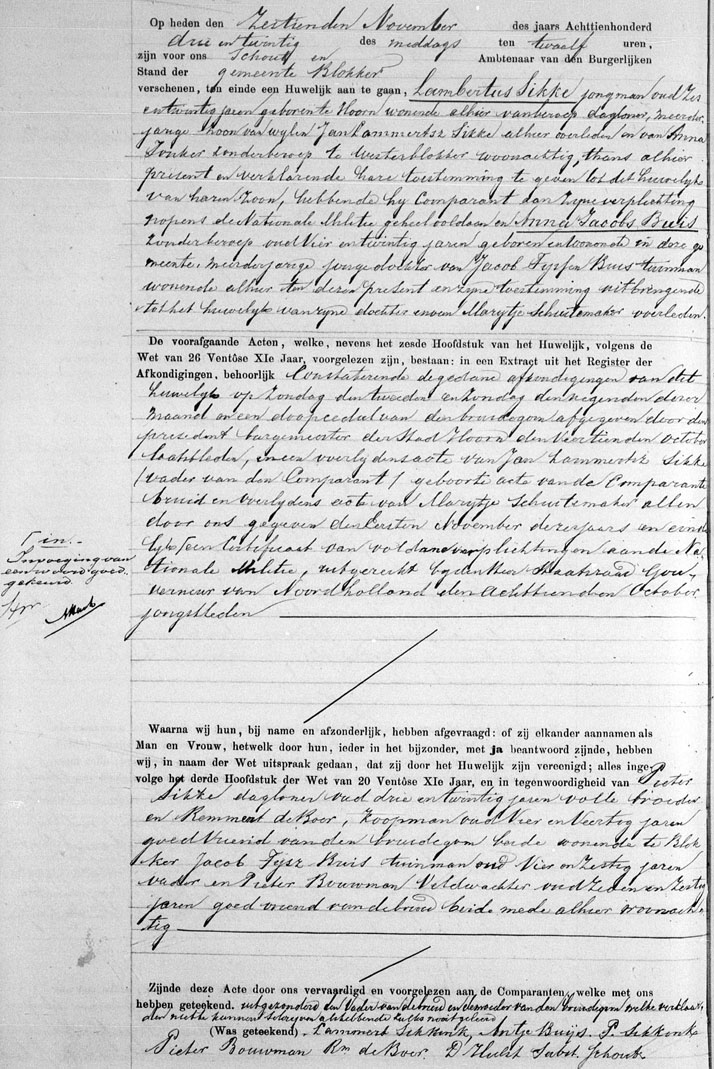 Op heden den Zestienden November des jaars Achttienhonderd
drie en twintig des middags ten twaalf uren,
zijn voor ons Schout en Ambtenaar van den Burgerlijken
Stand der gemeente Blokker
verschenen, ten einde een Huwelijk aan te gaan, Lambertus Sikke jongman oud Zes
en twintig jaren geboren te Hoorn wonende alhier van beroep dagloner, meerder
jarige Zoon van wylen Jan Lammertsz Sikke alhier overleden en van Anna
Jonker zonder beroep te Westerblokker woonachtig, thans alhier
present en verklarende hare toestemming te geven tot dit huwelyk
van haren Zoon, hebbende hy Comparant aan Zyne verplichting
nopens de Nationale Militie geheel voldaan en Anna Jacobs Buis
zonder beroep oud Vier en twintig jaren geboren en wonende in deze ge
meente, meerderjarige jonge dochter van Jacob Tyssen Buis tuinman
wonende alhier ten dezen present en zyne toestemming uitbrengende
tot het huwelyk van zyne dochter en van Marytje Schuitemaker overleden.
De voorafgaande Acten, welke, nevens het zesde Hoofdstuk van het Huwelijk, volgens de
Wet van 26 Ventôse XIe Jaar, voorgelezen zijn, bestaan: in een Extract uit het Register der
Afkondigingen, behoorlijk Constaterende de gedane afkondigingen van dit
huwelyk op Zondag den tweeden en Zondag den negenden dezer
maand en een doopcedul van den bruidegom afgegeven door den
president burgemeester der Stad Hoorn den Veertienden October
laatstleden, en een overlydens acte van Jan Lammertsz Sikke
(vader van den Comparant) geboorte acte van de Comparante
bruid en overlydens acte van Marytje Schuitemaker allen
door ons gegeven den Eersten November dezer jaars en einde
lyk een Certificaat van voldane verplichtingen aan de Na
tionale Militie, uitgereikt by den Heer Staatsraad Gou-
verneur van Noordholland den Achttienden October
jongstleden
in.
Invoeging van
een woord goed
gekeurd.
Waarna wij hun, bij name en afzonderlijk, hebben afgevraagd: of zij elkander aannamen als
Man en Vrouw, hetwelk door hun, ieder in het bijzonder, met ja beantwoord zijnde, hebben
wij, in naam der Wet uitspraak gedaan, dat zij door het Huwelijk zijn vereenigd; alles inge-
volge het derde Hoofdstuk der Wet van 20 Ventôse XIe Jaar, en in tegenwoordigheid van Pieter
Sikke dagloner oud drie en twintig jaren volle broeder
en Remment de Boer, Koopman oud Vier en Veertig jaren
goed Vriend van den bruidegom beide wonende te Blok
ker Jacob Tysz Buis tuinman oud Vier en Zestig jaren
vader en Pieter Bouwman Veldwachter oud Zeven en Zestig
jaren goed vriend van de bruid beide mede alhier woonach
tig
Zijnde deze Acte door ons vervaardigd en voorgelezen aan de Comparanten, welke met ons
hebben geteekend. uitgezonderd den Vader van de bruid en de moeder van den bruidegom welke verklaar
den niet te kunnen schryven als hebbende zulks nooit geleerd
(Was geteekend) Lammert Sikkink, Antje Buijs. P. Sikkink
Pieter Bouwman Rm de Boer. D Hulst Subst. Schout